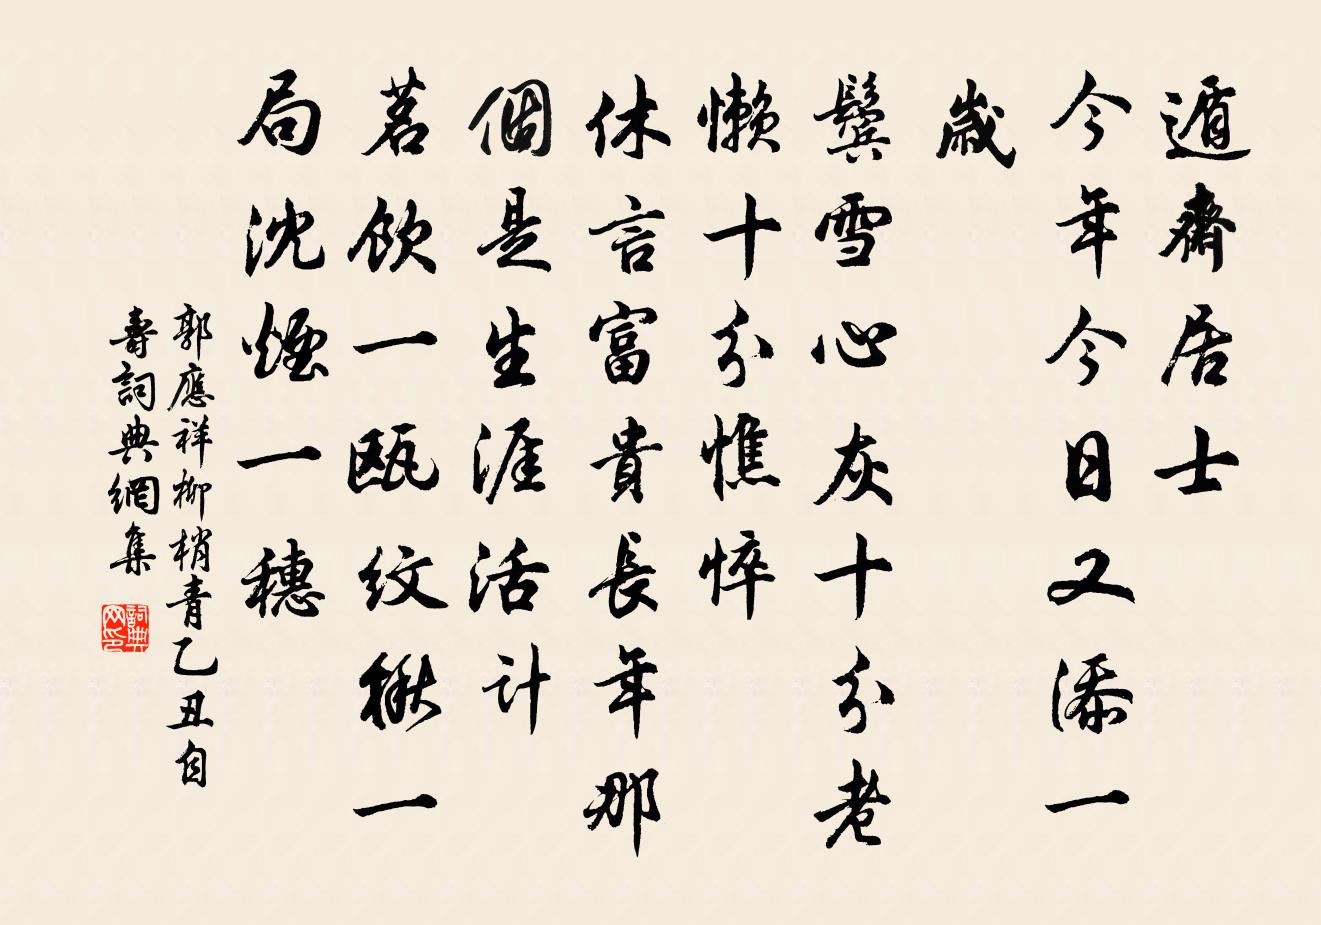 遁齋居士
今年今日又添一
歲
鬢雪心灰十分老
懶十分憔悴
休言富貴長年那
個是生涯活計
茗飲一甌紋楸一
局沈煙一穗
郭應祥柳梢青乙丑自
壽詞典網集
詞典网印